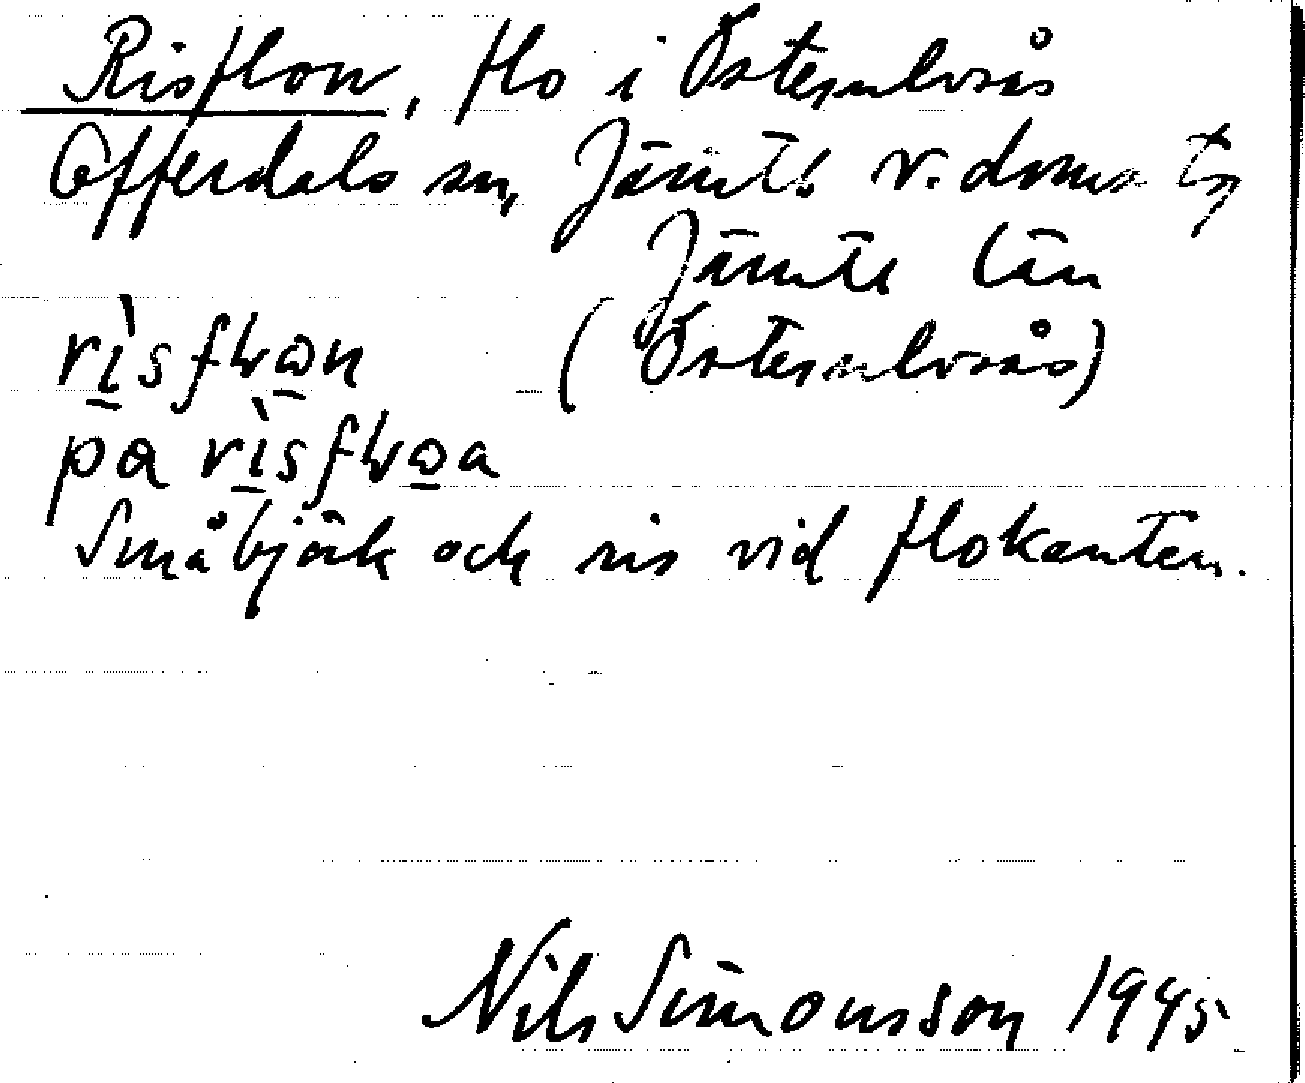 Risflon, flo i Östersulvsås
Offerdals sn, Jämtl. v. doms tg
Jämtl län
rìsfⱡɷn (Östersulvsås)
pa rìsfⱡɷa
Småbjörk och ris vid flokanten.
Nils Simonsson 1945